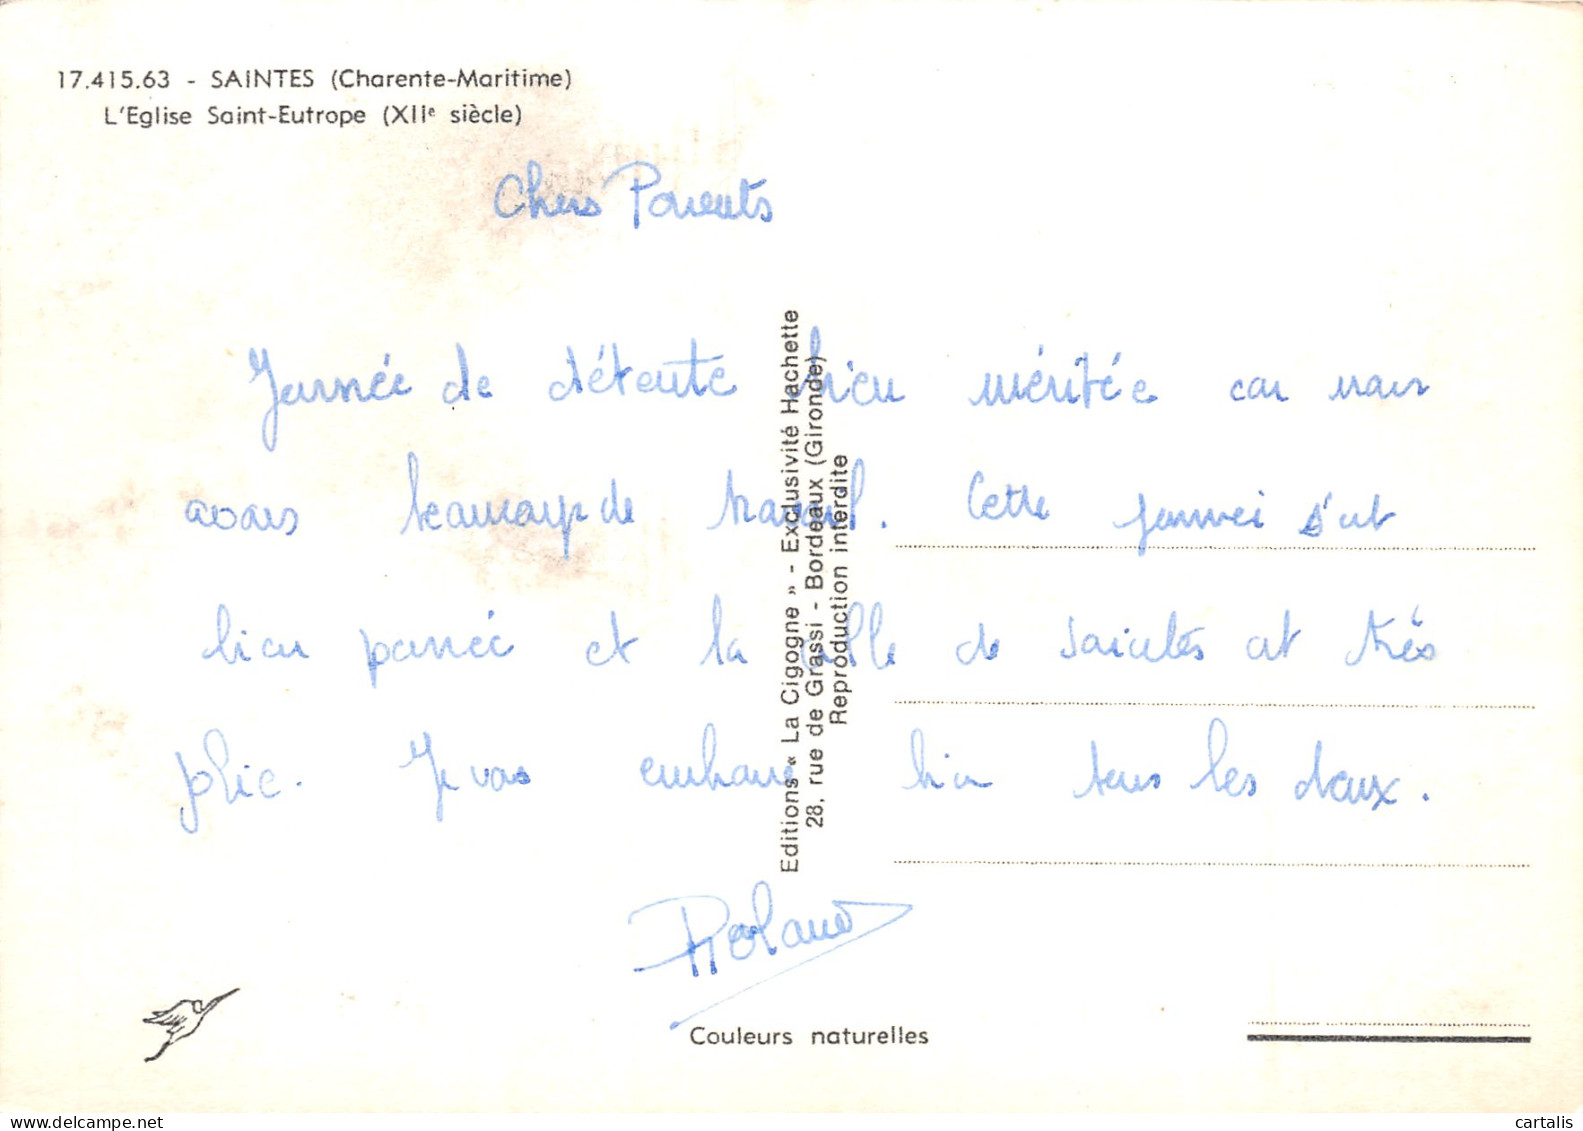 17.415.63 - SAINTES (Charente-Maritime)
L'Eglise Saint-Eutrope (XIIe siècle)
Chers Parents
Journée de détente bien méritée car nous
avons beaucoup de travail. Cette journée s'est
bien passée et la ville de Saintes est très
jolie. Je vous embrasse bien tous les deux.
Roland
Editions « La Cigogne » - Exclusivité Hachette
28, rue de Grassi - Bordeaux (Gironde)
Reproduction interdite
Couleurs naturelles
cartalis